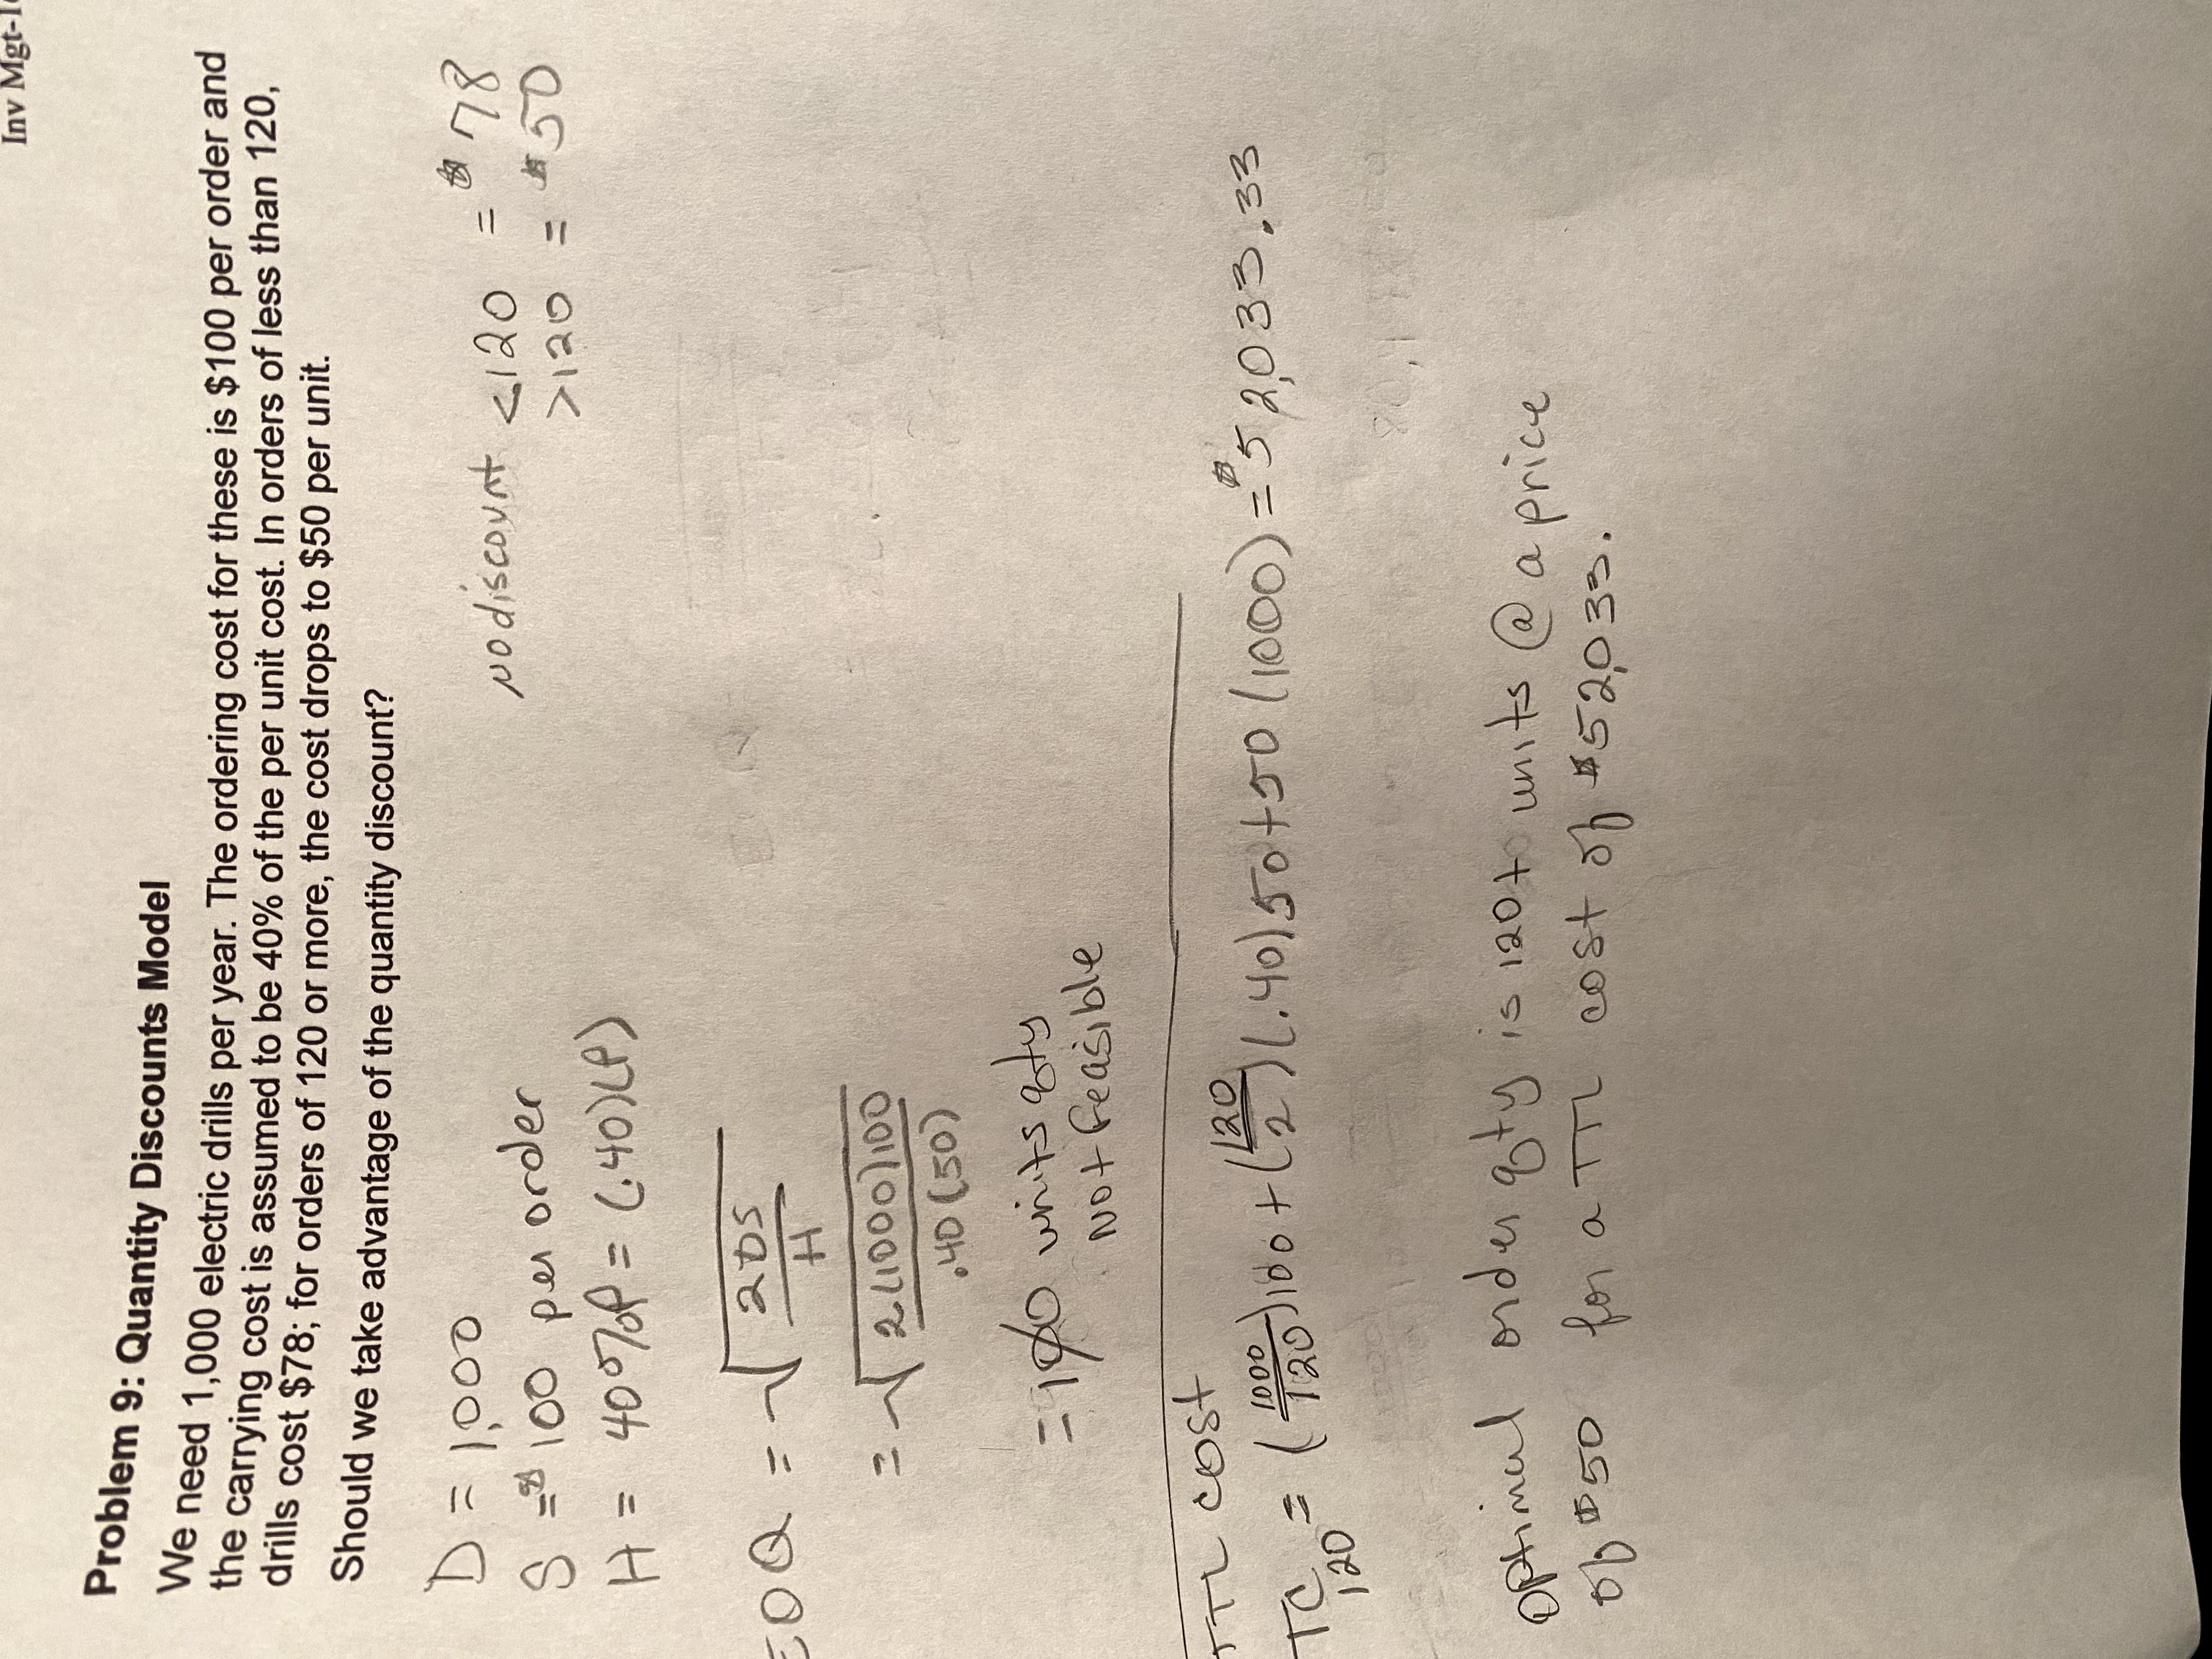 Inv Mgt-1
Problem 9: Quantity Discounts Model
We need 1,000 electric drills per year. The ordering cost for these is $100 per order and
the carrying cost is assumed to be 40% of the per unit cost. In orders of less than 120,
drills cost $78; for orders of 120 or more, the cost drops to $50 per unit.
Should we take advantage of the quantity discount?
D = 1,000
no discount <120 = $78
S = $100 per order
>120 = $50
H = 40%P = (.40)(P)
EOQ = √2DS/H
= √2(1000)100/.40(50)
= units qty
Not feasible
TTL cost
TC120 = (1000/120)100 + (120/2)(.40)50+50(1000) = $52,033.33
Optimal order qty is 120+ units @ a price
of $50 for a TTL cost of $52,033.